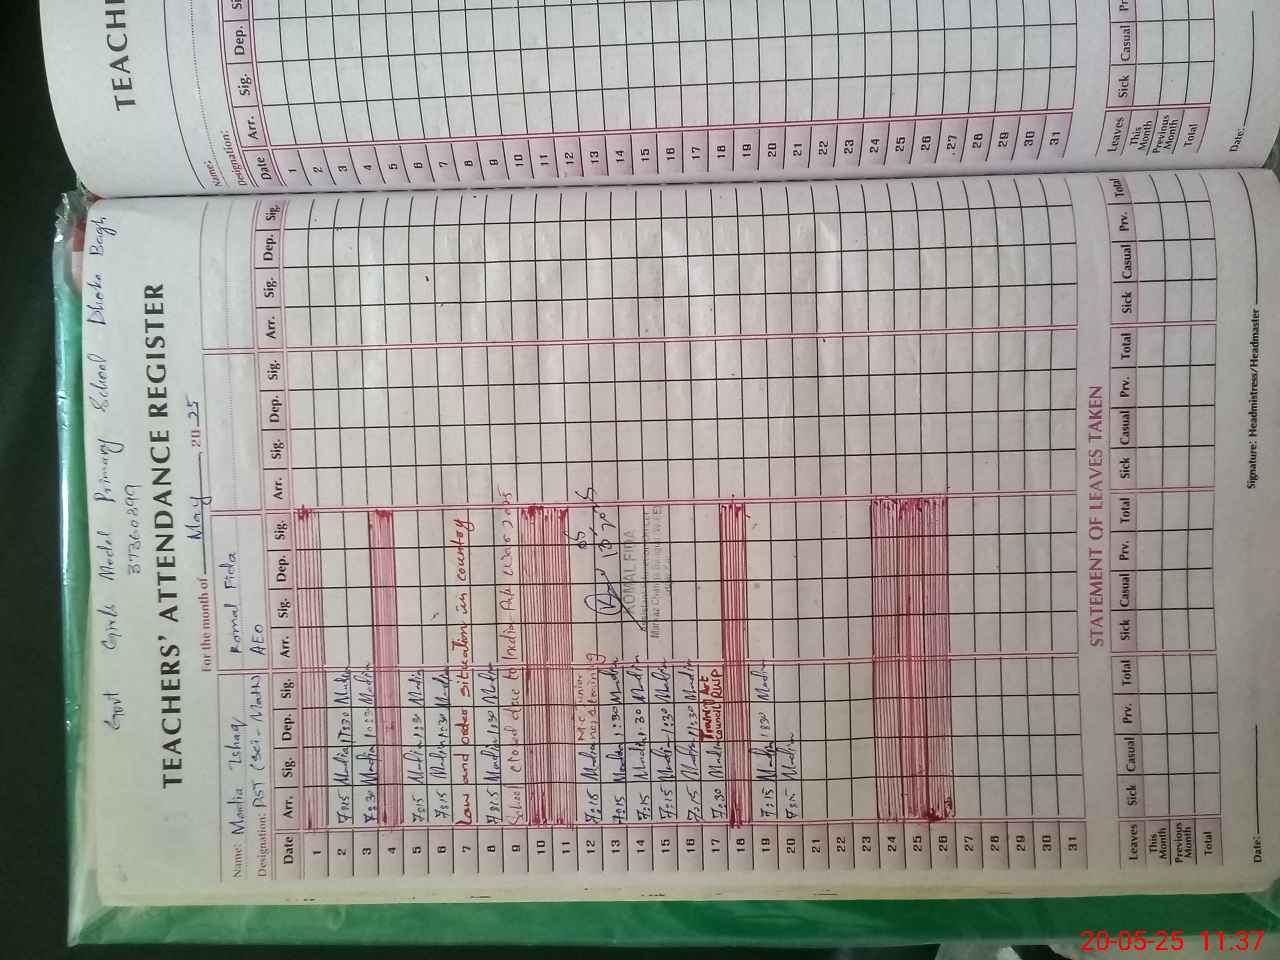 Govt Girls Model Primary School Dhoke Bagh
37360399
TEACHERS' ATTENDANCE REGISTER
For the month of May, 2025
Name: Madia Ishaq
Komal Fida
Designation: PST (Sci-Math)
AEO
Date Arr. Sig. Dep. Sig. Arr. Sig. Dep. Sig. Arr. Sig. Dep. Sig. Arr. Sig. Dep. Sig.
1
2 7:15 Madia 1:30 Madia
3 7:30 Madia Madia
4
5 7:15 Madia 1:30 Madia
6 7:15 Madia 1:30 Madia
7 Law and order situation in country
8 7:15 Madia 1:30 Madia
9 School closed due to Indian Pak war 2025
10
11
12 7:15 Madia
13 7:15 Madia 1:30 Madia
14 7:15 Madia 1:30 Madia
KOMAL FIDA
15 7:15 Madia 1:30 Madia
16 7:15 Madia 1:30 Madia
17 7:30 Madia Training Art Council RWP
18
19 7:15 Madia 1:30 Madia
20 7:15 Madia
21
22
23
24
25
26
27
28
29
30
31
STATEMENT OF LEAVES TAKEN
Leaves Sick Casual Prv. Total Sick Casual Prv. Total Sick Casual Prv. Total Sick Casual Prv. Total
This Month
Previous Month
Total
Date:
Signature: Headmistress/Headmaster
TEACHE
Name:
Designation:
Date Arr. Sig. Dep.
1
2
3
4
5
6
7
8
9
10
11
12
13
14
15
16
17
18
19
20
21
22
23
24
25
26
27
28
29
30
31
Leaves Sick Casual
This Month
Previous Month
Total
Date:
20-05-25 11:37